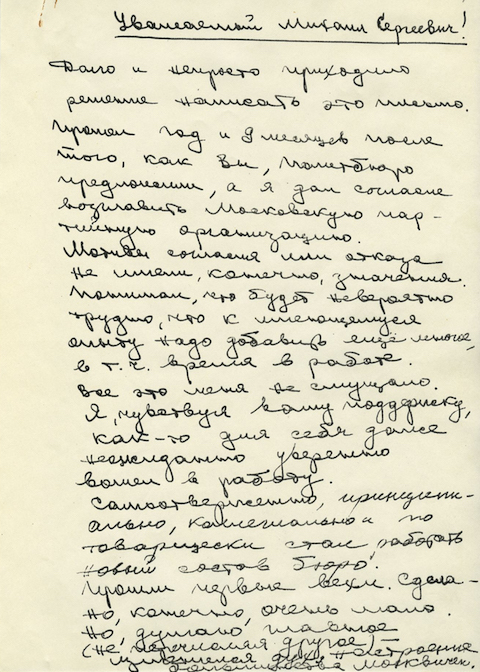 Уважаемый Михаил Сергеевич!
Долго и непросто приходило
решение написать это письмо.
Прошел год и 9 месяцев после
того, как Вы, Политбюро
предложили, а я дал согласие
возглавить Московскую пар-
тийную организацию.
Мотивы согласия или отказа
не имели, конечно, значения.
Понимал, что будет невероятно
трудно, что к имеющемуся
опыту надо добавить ещё многое,
в т.ч. время в работе.
Все это меня не смущало.
Я, чувствуя Вашу поддержку,
как-то для себя даже
неожиданно уверенно
вошел в работу.
Самоотверженно, принципи-
ально, коллегиально и по
товарищески стал работать
новый состав бюро.
Прошли первые вехи. Сдела-
но, конечно, очень мало.
Но, думаю, главное
(не перечисляя другое) –
изменился дух, настроение
большинства москвичей.